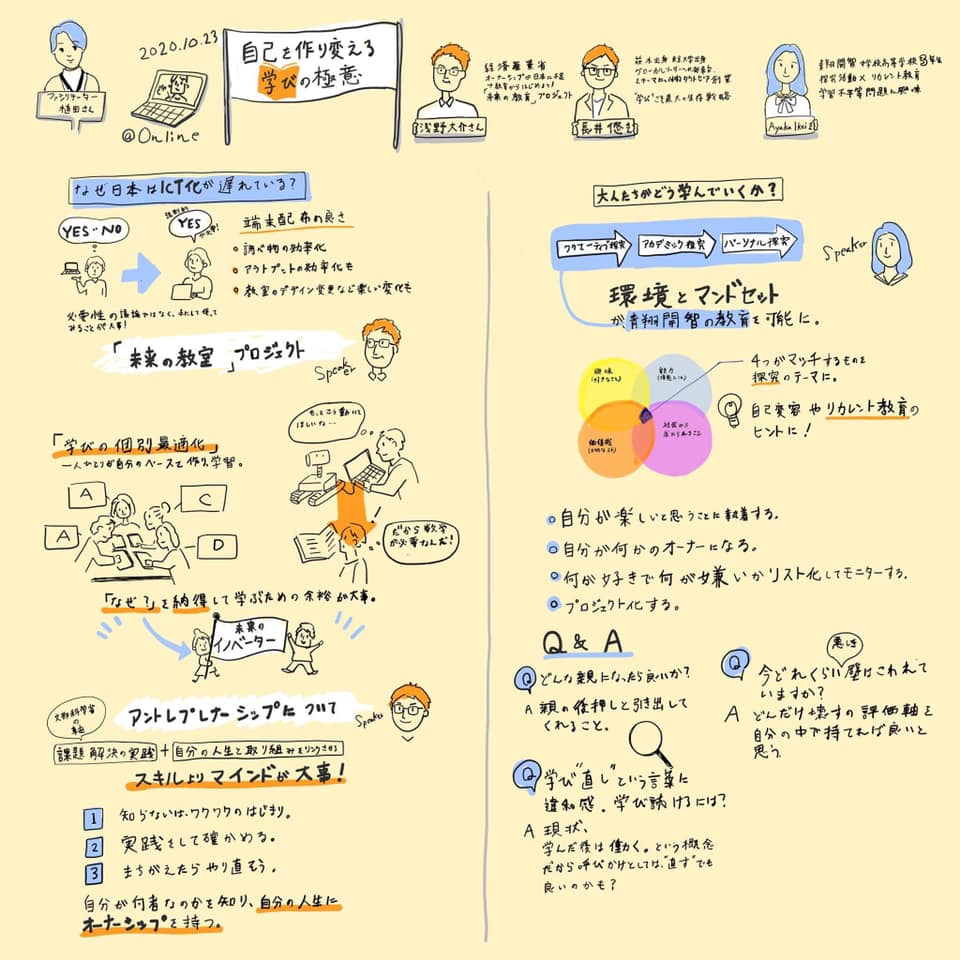 ファシリテーター
植田さん
2020.10.23
@Online
自己を作り変える
学びの極意
浅野大介さん
経済産業省
オーナーシップが日本に不足
「未来の教育」プロジェクト
長井悠さん
"学び"こそ最大の生存戦略
Ayaka Ikeiさん
青翔開智中学校高等学校3年生
探究活動×リカレント教育
学習不平等問題に興味
なぜ日本はICT化が遅れている?
YES・NO
強制的
YES
端末配布の良さ
調べ物の効率化
アウトプットの効率化も
教室のデザイン変更など楽しい変化も
必要性の議論ではなく、みたして使って
みることが大事!
「未来の教室」プロジェクト
Speaker
「学びの個別最適化」
一人ひとりが自分のペースで作り、学習。
A
C
A
D
もっとこう動いて
ほしいな…
だから数学
が必要なんだ!
「なぜ?」を納得して学ぶための余裕が大事。
未来の
イノベーター
アントレプレナーシップについて
Speaker
文部科学省
の軸
課題解決の実践+自分の人生と取り組みをリンクさせる
スキルよりマインドが大事!
1 知らないは、ワクワクのはじまり。
2 実践をして確かめる。
3 まちがえたらやり直そう。
自分が何者なのかを知り、自分の人生に
オーナーシップを持つ。
大人たちがどう学んでいくか?
クリエーティブ探究
アカデミック探究
パーソナル探究
Speaker
環境とマンドセット
が青翔開智の教育を可能に。
興味
(好きなこと)
能力
(得意なこと)
価値観
(大切なこと)
社会から
求められること
4つがマッチするものを
探究のテーマに。
自己変容やリカレント教育の
ヒントに!
自分が楽しいと思うことに執着する。
自分が何かのオーナーになる。
何が好きで何が嫌いかリスト化してモニターする。
プロジェクト化する。
Q & A
Q どんな親になったら良いか?
A 親の後押しと引き出して
くれること。
Q 学び"直し"という言葉に
違和感。学び続けるには?
A 現状、
学んだ後は働く。という概念
だから呼びかけとしては、"直す"でも
良いのかも?
悪しき
Q 今どれくらい壁はこわれて
いますか?
A どんだけ壊すの評価軸を
自分の中で持てれば良いと
思う